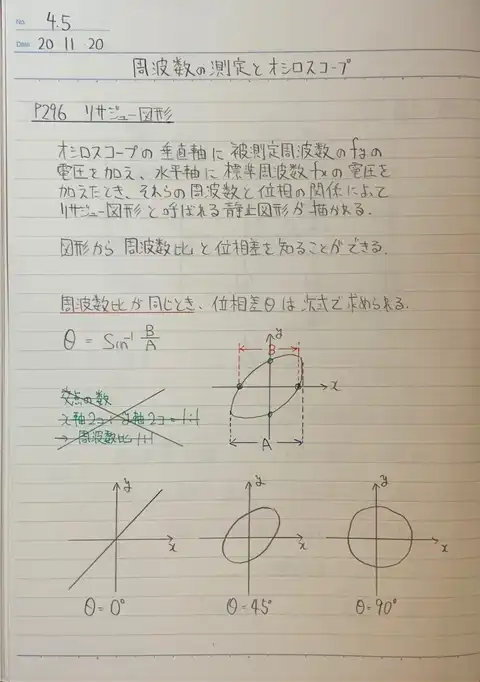 No. 4.5
Date 20・11・20
周波数の測定とオシロスコープ
P296 リサジュー図形
オシロスコープの垂直軸に被測定周波数のfyの
電圧を加え、水平軸に標準周波数fxの電圧を
加えたとき、それらの周波数と位相の関係によって
リサジュー図形と呼ばれる静止図形が描かれる.
図形から周波数比と位相差を知ることができる.
周波数比が同じとき、位相差θは次式で求められる.
θ = Sin⁻¹ B/A
y
B
x
A
交点の数
x軸2コ: y軸2コ = 1:1
→ 周波数比 1:1
y
x
y
x
y
x
θ=0°
θ=45°
θ=90°